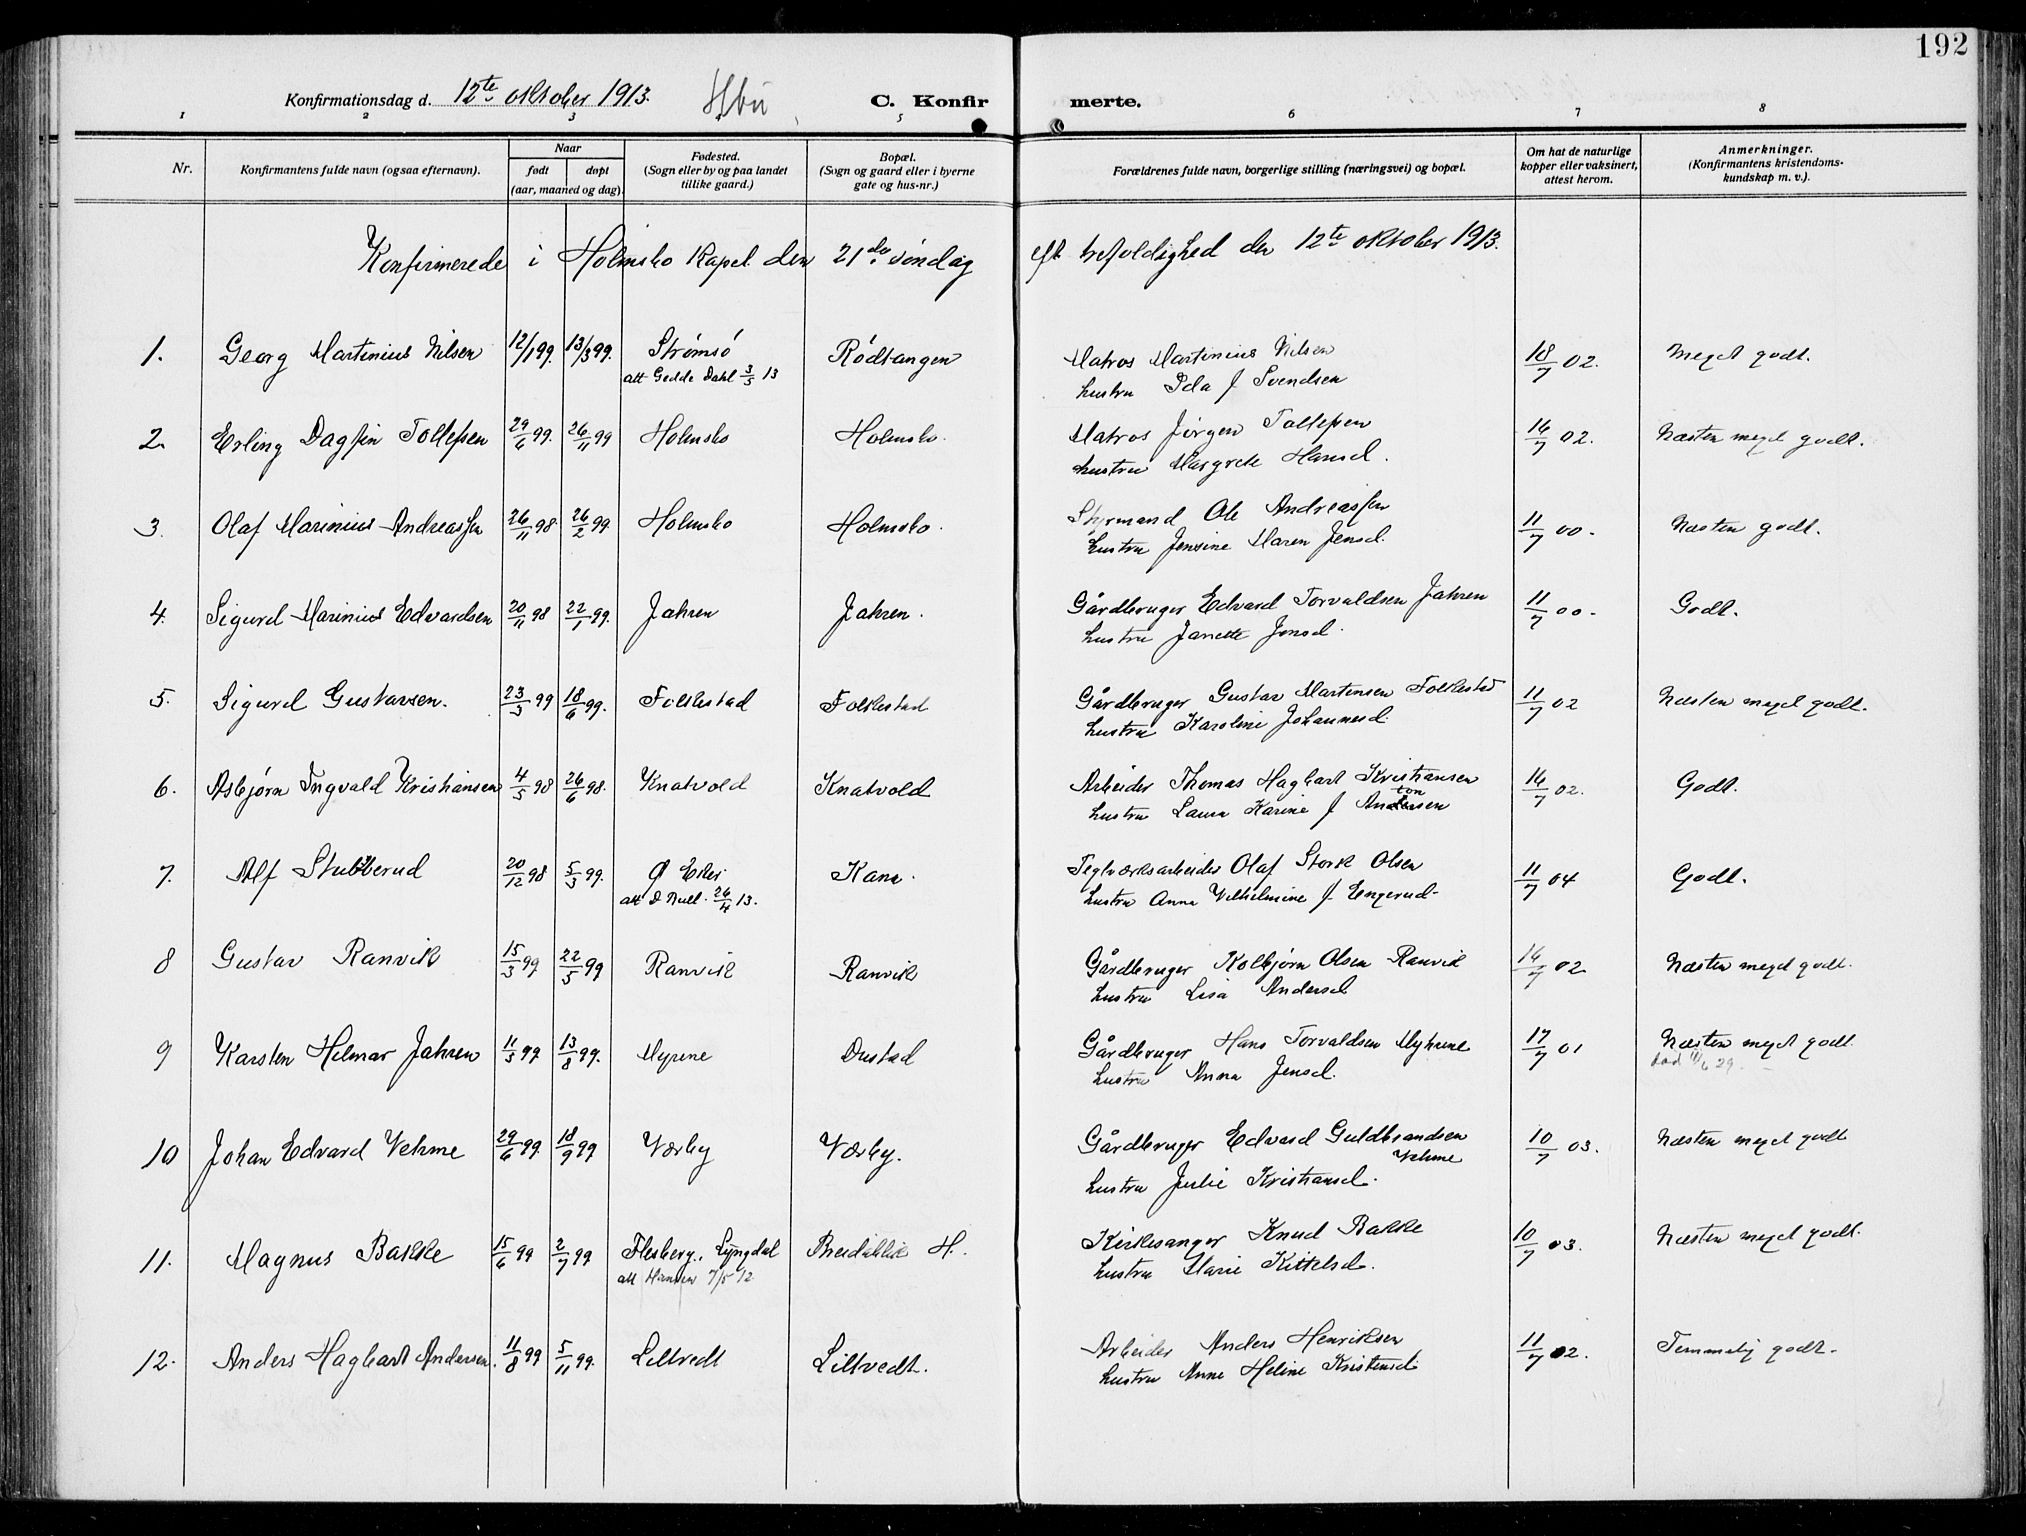 192
Konfirmationsdag d. 12te oktober 1913. C. Konfirmerte.
1 2 3 5 6 7 8
Nr. Konfirmantens fulde navn (ogsaa efternavn). Naar født døpt (aar, maaned og dag). Fødested. (Sogn eller by og paa landet tillike gaard.) Bopæl. (Sogn og gaard eller i byerne gate og hus-nr.) Forældrenes fulde navn, borgerlige stilling (næringsvei) og bopæl. Om hat de naturlige kopper eller vaksinert, attest herom. Anmerkninger. (Konfirmantens kristendoms-kundskap m. v.).
Konfirmerede i Holmsbo Kapel den 21de søndag eft. trefoldighed den 12te oktober 1913.
1. Georg Martinius Nilsen 12/1 99. 13/3 99. Strømsø Rødtangen Matros Martinius Nilsen 18/7 02. Meget godt.
att Gedde Dahl 3/5 13 hustru Ida f Svendsen
2. Erling Dagfin Tollefsen 29/6 99. 26/11 99 Holmsbo Holmsbo. Matros Jørgen Tollefsen 16/7 02. Næsten meget godt.
hustru Margrete Hansd.
3. Olaf Marinius Andreassen 26/11 98 26/2 99. Holmsbo Holmsbo. Styrmand Ole Andreassen 11/7 00. Næsten godt.
hustru Jensine Maren Jensd.
4. Sigurd Marinius Edvardsen 20/11 98 22/1 99. Jahren Jahren. Gårdbruger Edvard Torvaldsen Jahren 11/7 00. Godt.
hustru Janette Jensd.
5. Sigurd Gustavsen. 23/3 99 18/6 99. Folkestad Folkestad Gårdbruger Gustav Martinsen Folkestad 11/7 02 Næsten meget godt.
hustru Karoline Johannesd.
6. Asbjørn Ingvald Kristiansen 4/5 98 26/6 98. Knatvold Knatvold Arbeider Thomas Hagbart Kristiansen 16/7 02. Godt.
hustru Laura Karine f Andersen
7. Alf Stubberud 20/12 98 5/3 99. Ø Eker Kana. Teglverksarbeider Olaf Stork Olsen 11/7 04 Godt.
att D Bull. 26/4 13. hustru Anna Vilhelmine f. Engerud.
8 Gustav Ranvik 15/3 99 22/5 99 Ranvik Ranvik Gårdbruger Kolbjørn Olsen Ranvik 16/7 02 Næsten meget godt.
hustru Lisa Andersd
9 Karsten Hilmar Jahren 11/5 99 13/8 99. Myrene Dustad Gårdbruger Hans Torvaldsen Myhrene 17/7 01 Næsten meget godt.
hustru Anna Jensd. død 11/6 29.
10 Johan Edvard Vehme 29/6 99. 18/9 99 Værby Værby. Gårdbruger Edvard Guldbrandsen Vehme 10/7 03. Næsten meget godt
hustru Julie Kristiansd.
11. Magnus Bakke 15/6 99 2/7 99 Flesberg, Lyngdal Breidablik H. Kirkesanger Knud Bakke 10/7 03. Næsten meget godt.
att Hansen 7/5 12 hustru Marie Kittelsd.
12. Anders Hagbart Andersen. 11/8 99 5/11 99. Liltvedt Liltvedt. Arbeider Anders Henriksen 11/7 02. Temmelig godt.
hustru Anne Heline Kristensd.